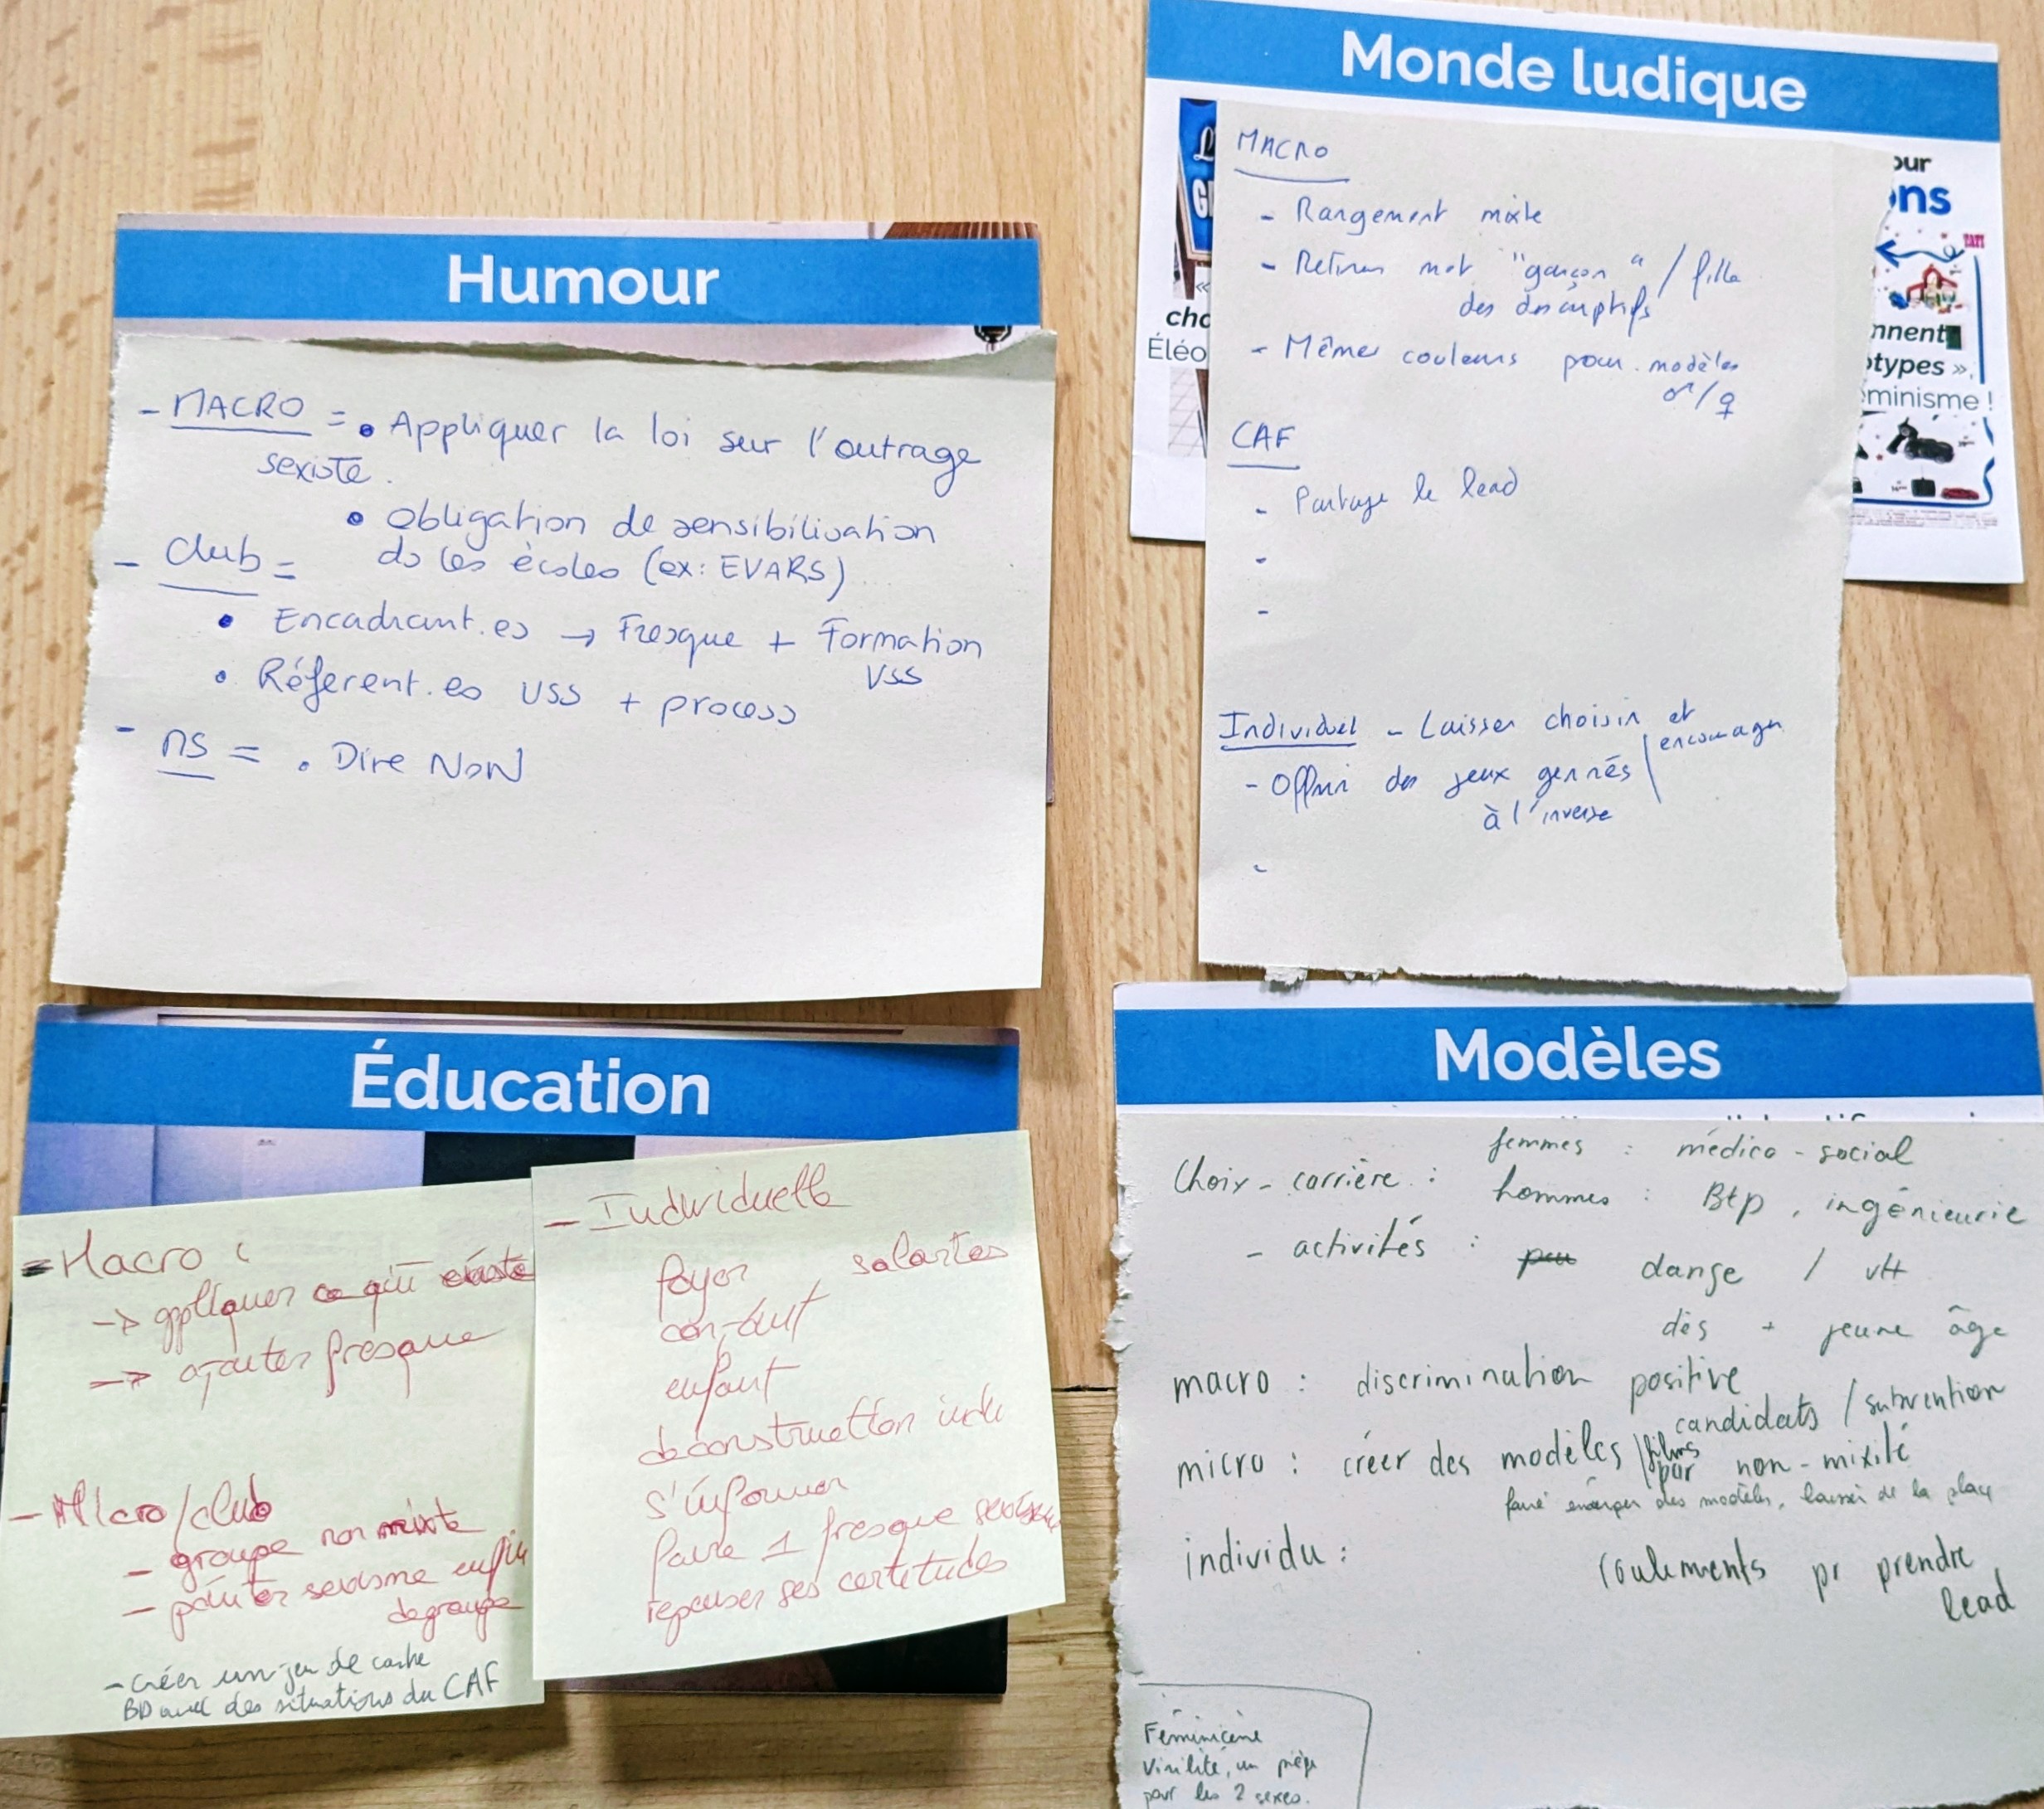 Humour
- MACRO = • Appliquer la loi sur l'outrage
sexiste.
• Obligation de sensibilisation
ds les écoles (ex: EVARS)
- Club =
• Encadrant.es → Fresque + Formation
VSS
• Réferent.es VSS + process
- ns = . Dire NON
Monde ludique
MACRO
- Rangement mixte
- Retirer mot "garçon" / fille
des descriptifs
- Même couleurs pour modèles
♂/♀
CAF
- Partage le lead
-
-
Individuel - Laisser choisir et
encourager
- Offrir des jeux genrés
à l'inverse
-
our
ons
TATI
cho
Éléo
nnent
otypes »,
éminisme !
Éducation
- Macro :
→ appliquer ce qui existe
→ ajouter fresque
- Micro/club
- groupe non mixte
- pointer sexisme en fin
de groupe
- créer un jeu de carte
BD avec des situations du CAF
- Individuelle
foyer salartes
enfant
deconstruction indu
s'informer
faire 1 fresque sexisme
repenser ses certitudes
Modèles
femmes : médico-social
Choix - carrière :
hommes : Btp, ingénieurie
- activités : danse / vtt
dès + jeune âge
macro : discrimination positive
candidats / subvention
micro : créer des modèles / films
par non-mixité
faire émerger des modèles, laisser de la place
individu :
roulements pr prendre
lead
Féminicène
Virilité, un piège
pour les 2 sexes.